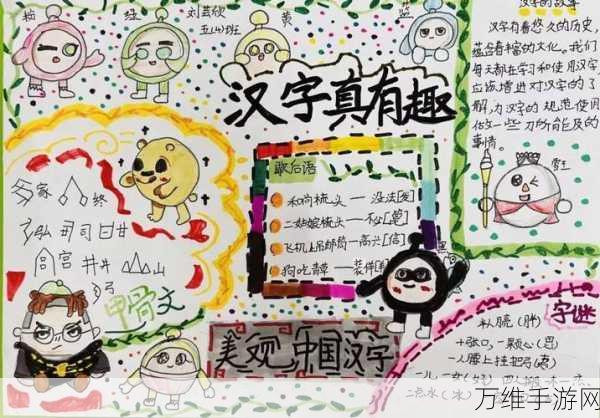 红
刘芸欣
五(4)班
黄
蓝
汉字的故事
汉字真有趣
汉字有着悠久的历史,
蕴含着丰富的文化。我们
每天都在学习和使用汉字,
应该增进对汉字的了
解,为汉字的规范使用
做一些力所能及的
事情。
雪王
歇后语
和尚梳头——没法[发]
二姑娘梳头—不必[笔]
飞机上吊邮局—高兴[信]
狗吃青草——装样[羊]
黑
家 终
弘 司 司 甘
宫 井 山
甲骨文
美观中国汉字
字谜
十张口,一颗心(思)
一人腰上挂把弓(夷)
二点水(冰)
万维手游网